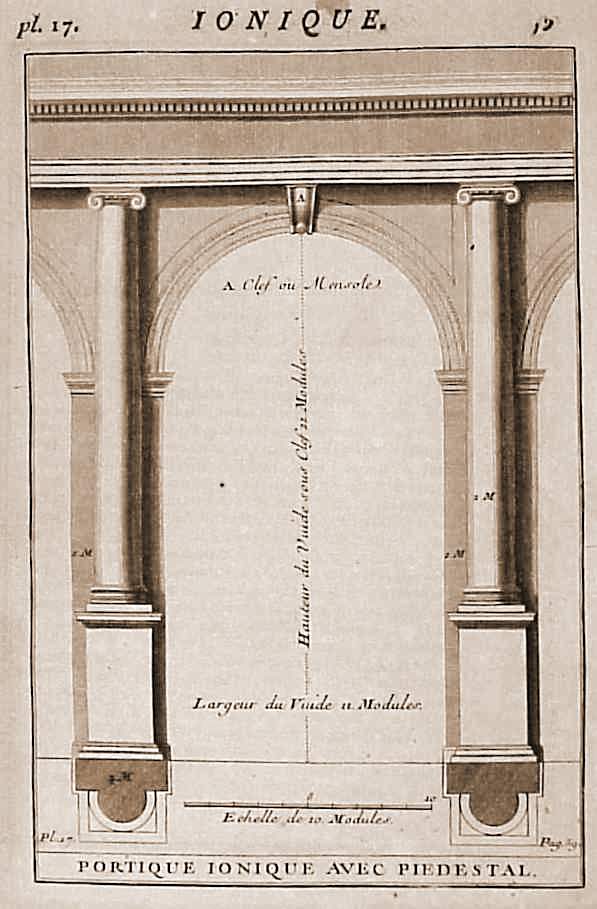 pl. 17.
IONIQUE.
A
A Clef ou Mensole
Hauteur du Vuide sous Clef 22 Modules
2 M
2 M
Largeur du Vuide 11 Modules.
10
Echelle de 10 Modules.
Pl. 17.
PORTIQUE IONIQUE AVEC PIEDESTAL.